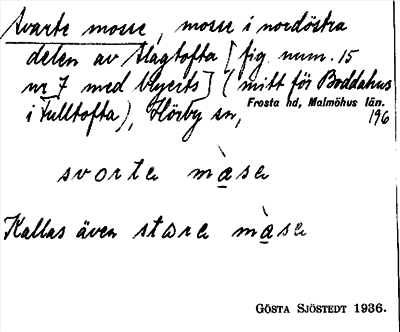 Svarte mosse, mosse i nordöstra
delen av Slagtofta [fig. num. 15
nr 7 med blyerts] (mitt för Boddahus
Frosta hd, Malmöhus län.
i Fulltofta), Hörby sn, 196
svarta màsa
Kallas även stora màsa
GÖSTA SJÖSTEDT 1936.